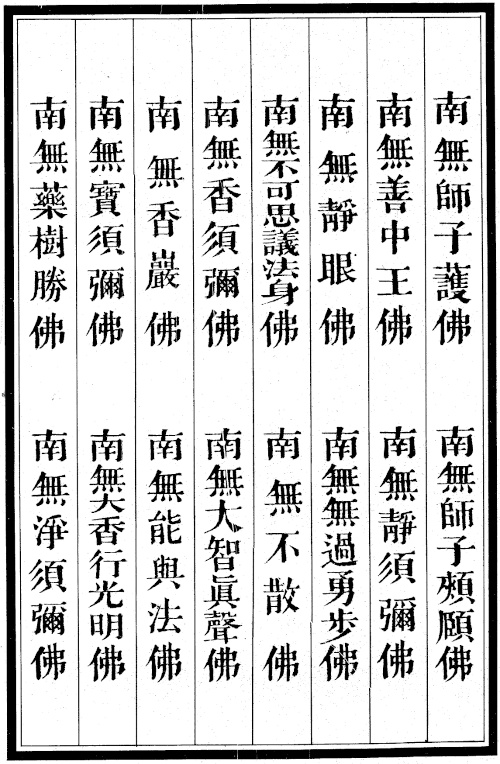 南無師子護佛
南無師子頰頤佛
南無善中王佛
南無靜須彌佛
南無靜眼佛
南無無過勇步佛
南無不可思議法身
南無不散佛
南無香須彌佛
南無大智眞聲佛
南無香巖佛
南無能與法佛
南無寶須彌佛
南無大香行光明佛
南無藥樹勝佛
南無淨須彌佛